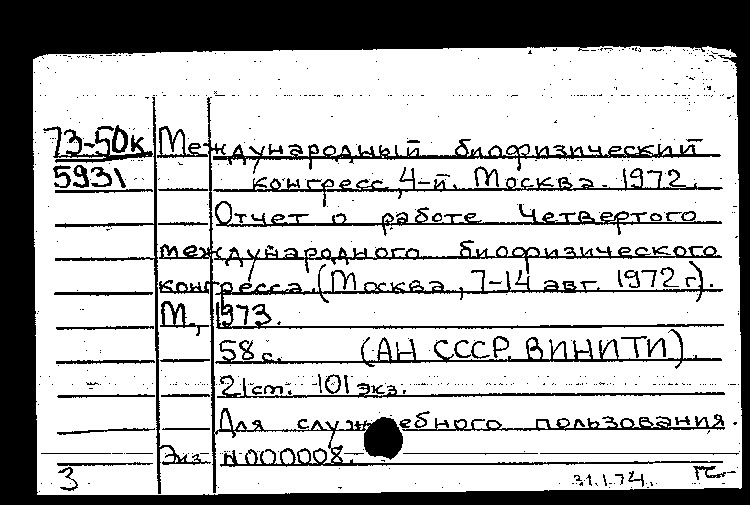 73-50к Международный биофизический
5931 конгресс, 4-й. Москва. 1972.
Отчет о работе Четвертого
международного биофизического
конгресса. (Москва, 7-14 авг. 1972 г).
М., 1973.
58 с. (АН СССР. ВИНИТИ).
21 см. 101 экз.
Для служебного пользования.
Экз N000008.
3 31.1.74.